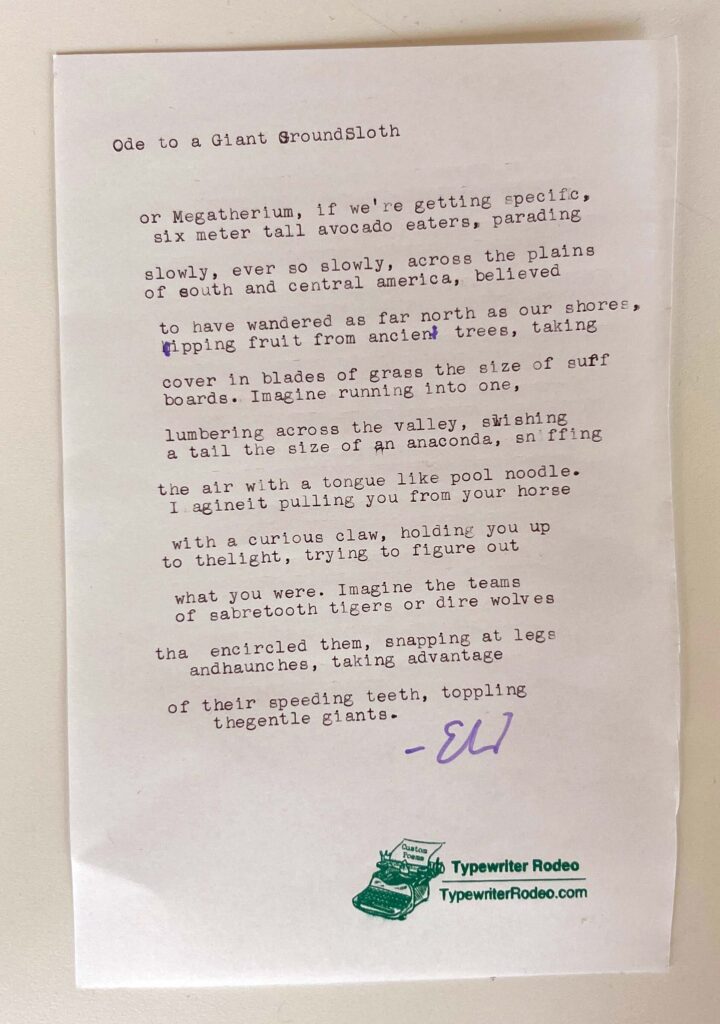 Ode to a Giant GroundSloth
or Megatherium, if we're getting specific,
six meter tall avocado eaters, parading
slowly, ever so slowly, across the plains
of south and central america, believed
to have wandered as far north as our shores,
ripping fruit from ancient trees, taking
cover in blades of grass the size of surf
boards. Imagine running into one,
lumbering across the valley, swishing
a tail the size of an anaconda, sniffing
the air with a tongue like pool noodle.
I agineit pulling you from your horse
with a curious claw, holding you up
to thelight, trying to figure out
what you were. Imagine the teams
of sabretooth tigers or dire wolves
tha encircled them, snapping at legs
andhaunches, taking advantage
of their speeding teeth, toppling
thegentle giants.
Custom
Poems
Typewriter Rodeo
TypewriterRodeo.com